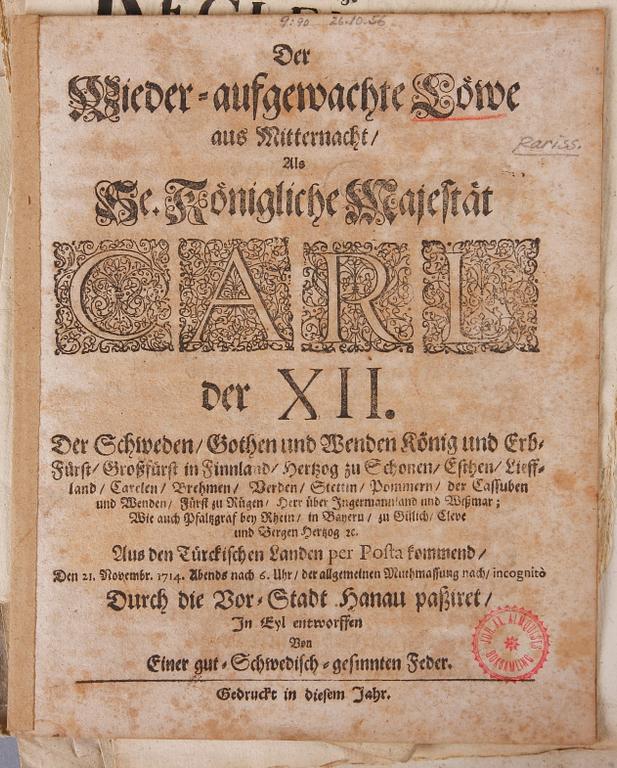 9:90 26.10.56
Der
Wieder-aufgewachte Löwe
aus Mitternacht/
Als
Se. Königliche Majestät
CARL
der XII.
Der Schweden/ Gothen und Wenden König und Erb-
Fürst/ Großfürst in Finnland/ Hertzog zu Schonen/ Esthen/ Lieff-
land/ Carelen/ Brehmen/ Verden/ Stettin/ Pommern/ der Cassuben
und Wenden/ Fürst zu Rügen/ Herr über Ingermannland und Wißmar;
Wie auch Pfaltzgraf bey Rhein/ in Bayern/ zu Gülich/ Cleve
und Bergen Hertzog ꝛc.
Aus den Türckischen Landen per Posta kommend/
Den 21. Novembr. 1714. Abends nach 6. Uhr/ der allgemeinen Muthmassung nach/ incognitò
Durch die Vor-Stadt Hanau paßiret/
In Eyl entworffen
Von
Einer gut-Schwedisch-gesinnten Feder.
Gedruckt in diesem Jahr.
Rariss.
JOH. AX. ALMQUISTS
BOKSAMLING